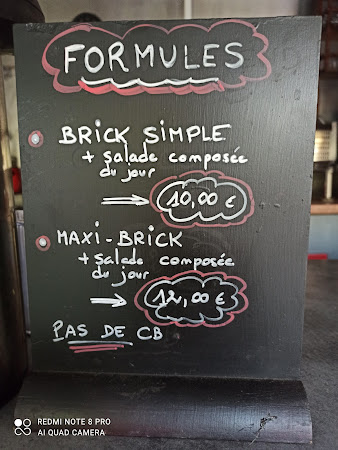 FORMULES
BRICK SIMPLE
+ salade composée
du jour
10,00 €
MAXI-BRICK
+ salade composée
du jour
12,00 €
PAS DE CB
REDMI NOTE 8 PRO
AI QUAD CAMERA